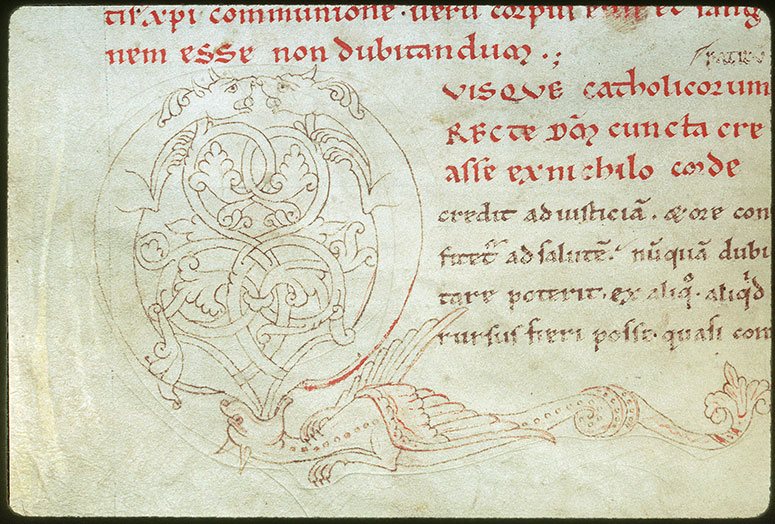 tis xp̄i communione. ueru corpus eiꝰ et sang
nem esse non dubitandum .;
VISQVE catholicorum
RECTE DM̄ cuncta cre
asse ex nichilo corde
credit ad iusticiā. & ore con
fitet᷑ ad salutē. nūquā dubi
tare poterit. ex aliqͦ. aliqͥd
rursus fieri posse. quasi com